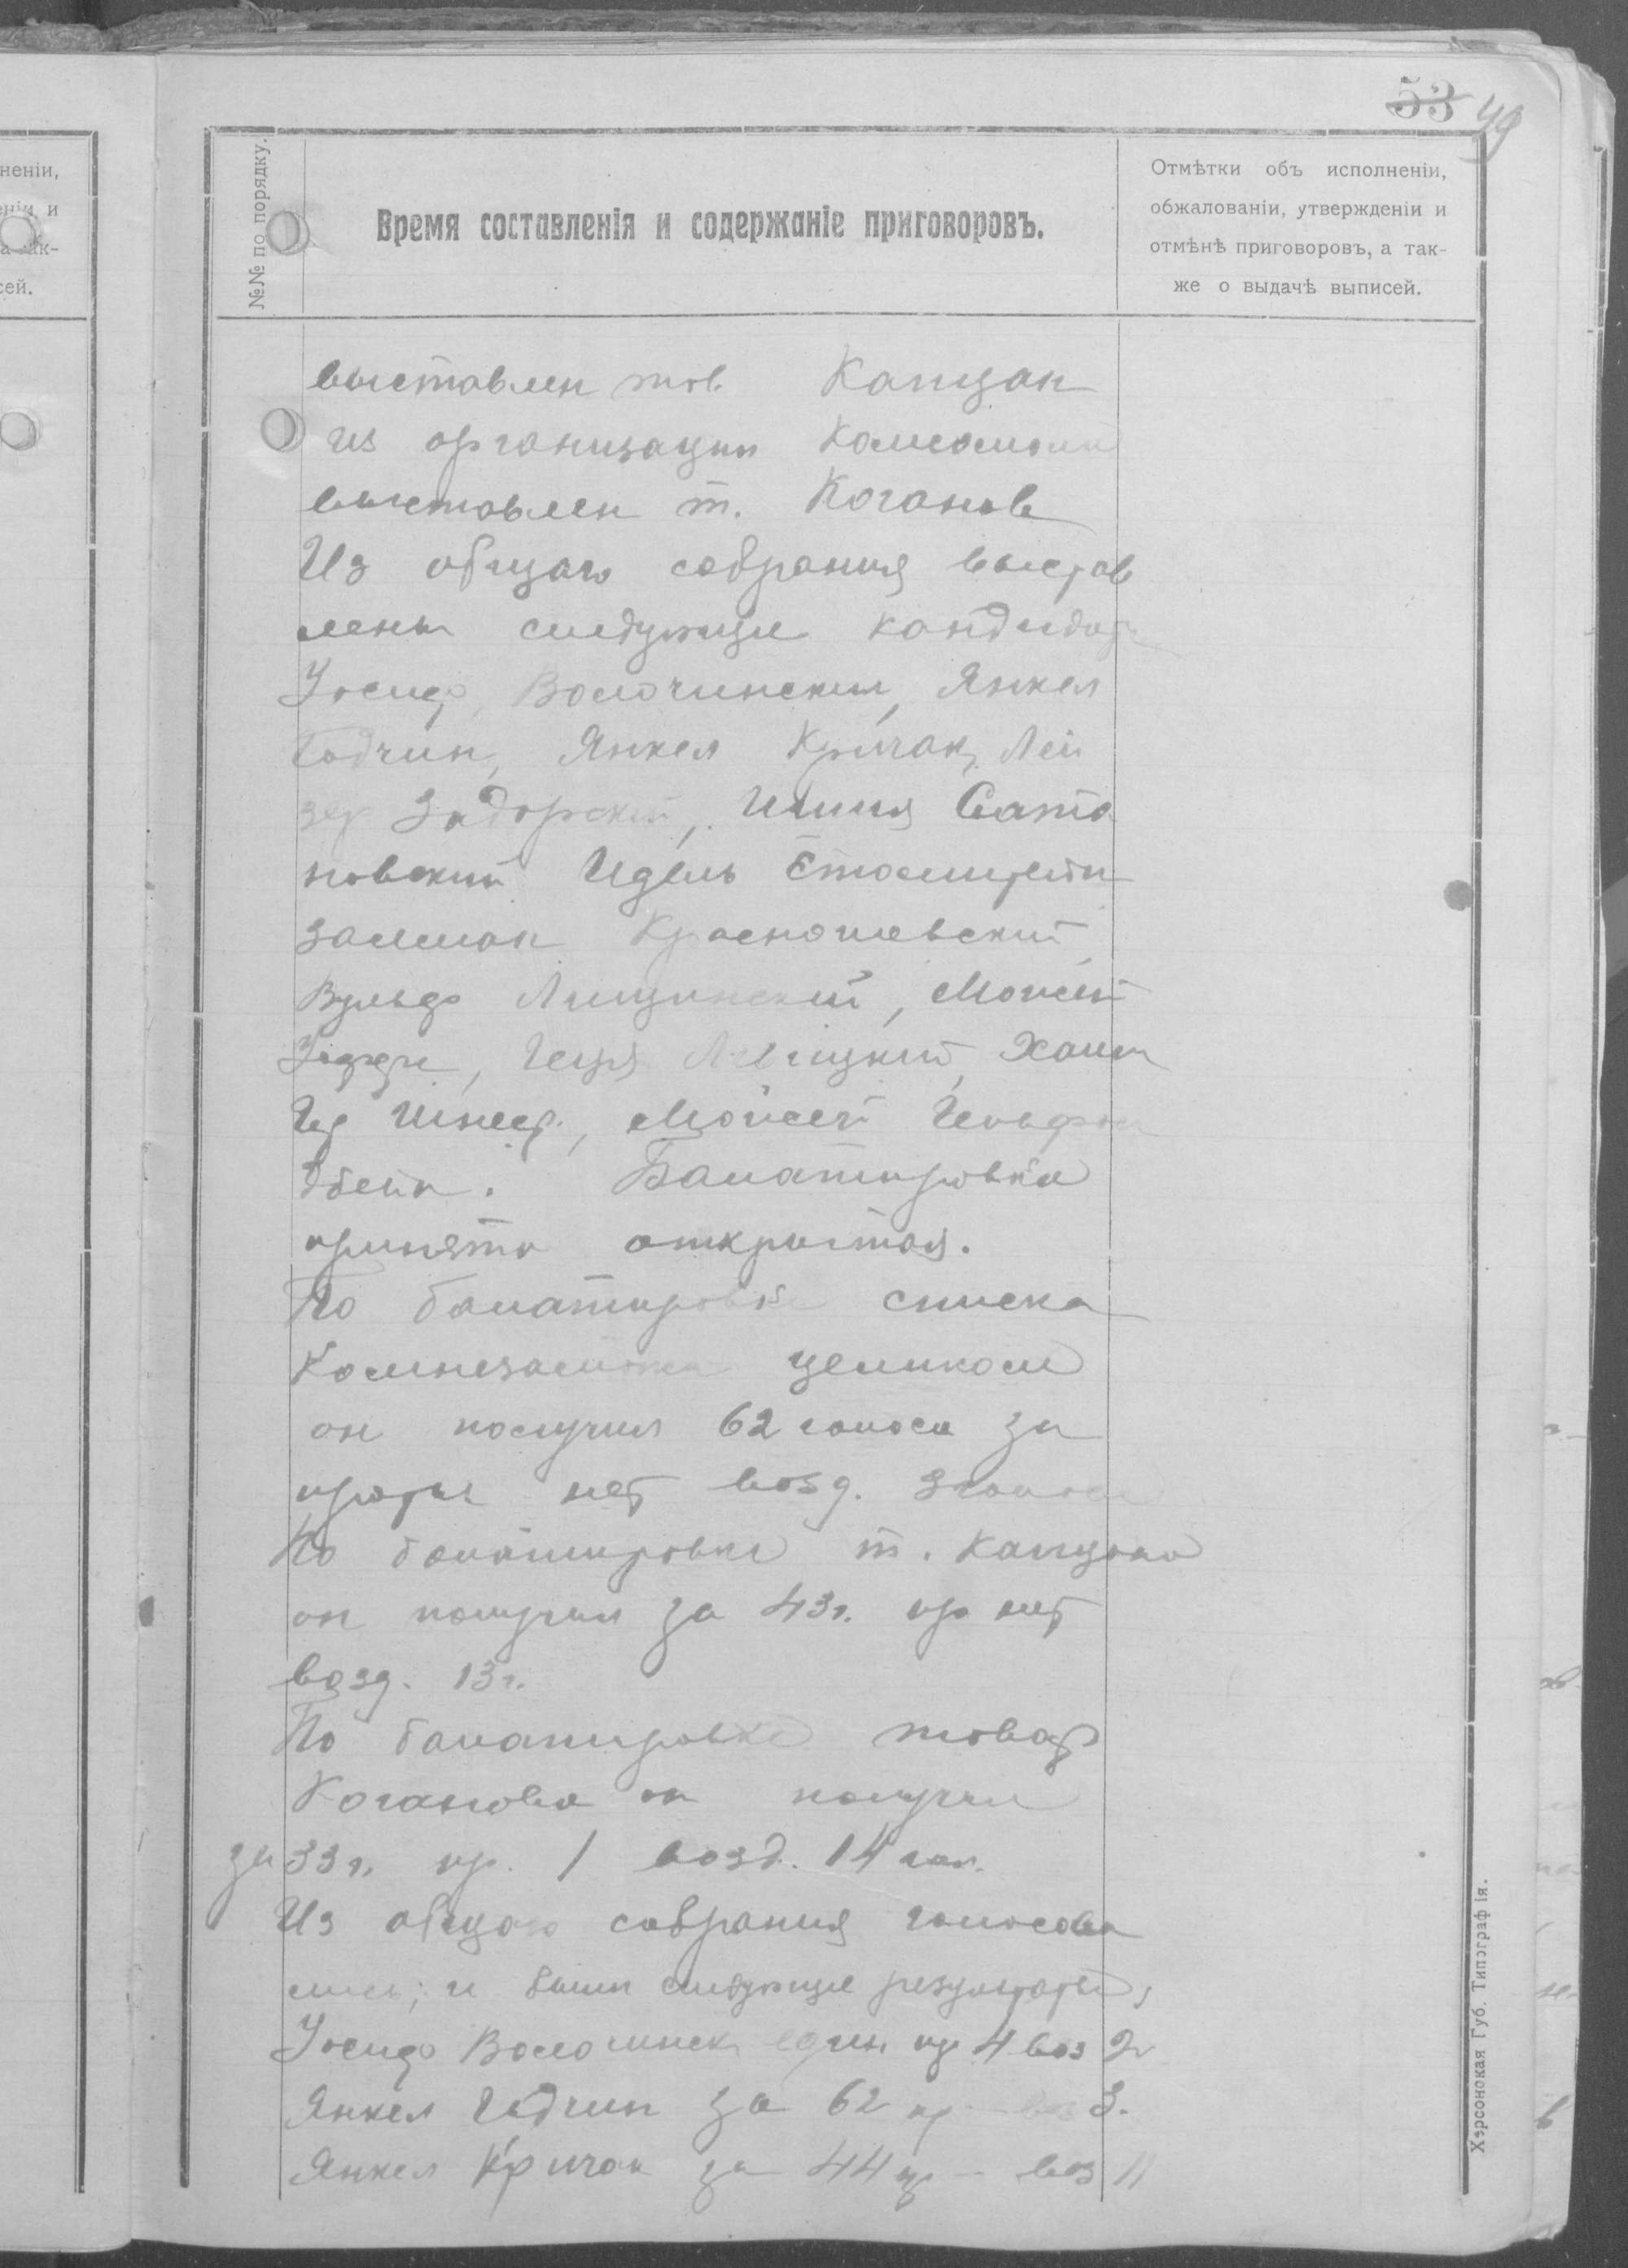 53 49
неніи,
еніи и
а так-
сей.
№№ по порядку.
Время составленія и содержаніе приговоровъ.
Отмѣтки объ исполненіи,
обжалованіи, утвержденіи и
отмѣнѣ приговоровъ, а так-
же о выдачѣ выписей.
выставлен тов. Капцан
из организации Комсомола
выставлен т. Коганов
Из общаго собрания выстав
лены следующие кандидаты
Иосиф, Волочинский, Янкел
Годчин, Янкел Кричак, Лей
зер Задорский, Шлия Сата
новский Идель
Залман Красношевский
Вульф Лищинский, Моисей
Хаим
Шнеер, Моисей Гельфон
дбейн. Балатировка
принята открытая.
По балатировке списка
Комнезаможа целиком
он получил 62 голоса за
против нет возд. 3 голоса
По балатировке т. Капцана
он получил за 43 г. пр нет
возд. 13 г.
По балатировке товар
Коганова он получил
за 33 г. пр. 1 возд. 14 гол.
Из общаго собрания голосова
лись; и были следующие результаты,
Иосиф Волочинск един. пр 4 воз 2
Янкел Годчин за 62 пр - воз 3.
Янкел Кричак за 44 пр - воз 11
Херсонская Губ. Типографія.